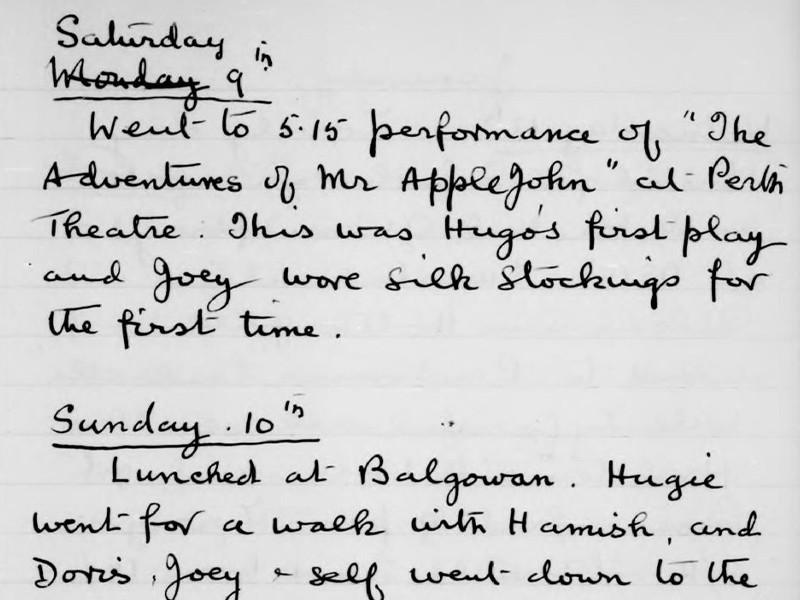 Saturday
Monday 9th
Went to 5.15 performance of "The
Adventures of Mr AppleJohn" at Perth
Theatre. This was Hugo's first play
and Joey wore silk stockings for
the first time.
Sunday. 10th
Lunched at Balgowan. Hugie
went for a walk with Hamish, and
Doris, Joey & self went down to the